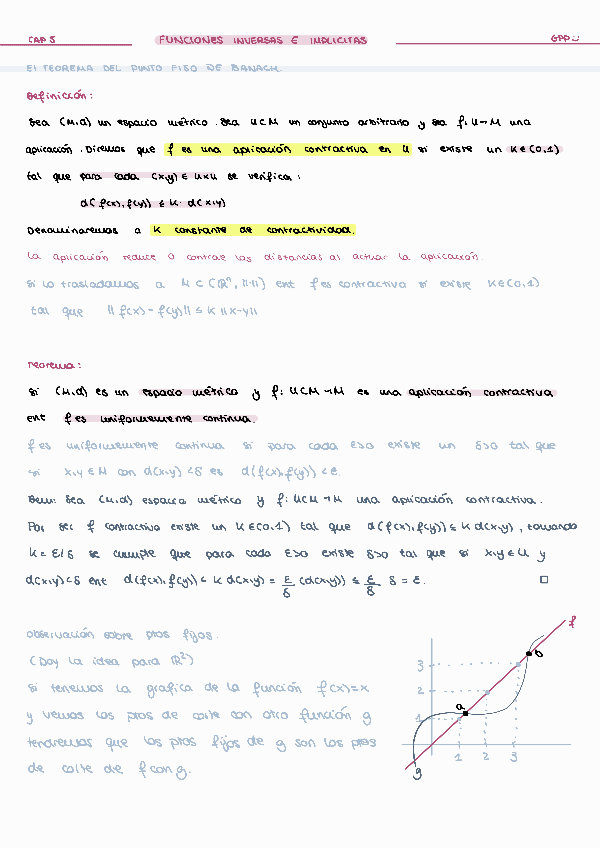 CAP 5 FUNCIONES INVERSAS E IMPLICITAS GPD
El TEOREMA DEL PUNTO FIJO DE BANACH.
Definición:
Sea (M,d) un espacio métrico. Sea U⊂M un conjunto arbitrario y sea f: U→M una
aplicación. Diremos que f es una aplicación contractiva en U si existe un K∈(0,1)
tal que para cada (x,y)∈ U×U se verifica:
d(f(x),f(y)) ≤ K· d(x,y)
Denominaremos a K constante de contractividad.
La aplicación reduce o contrae las distancias al actuar la aplicación.
Si lo trasladamos a M⊂(ℝⁿ, ||·||) ent f es contractiva si existe K∈(0,1)
tal que ||f(x)-f(y)|| ≤ K||x-y||
Teorema:
Si (M,d) es un espacio métrico y f: U⊂M→M es una aplicación contractiva
ent f es uniformemente continua.
f es uniformemente continua si para cada ε>0 existe un δ>0 tal que
si x,y∈M con d(x,y)<δ es d(f(x),f(y))<ε.
Dem: Sea (M,d) espacio métrico y f: U⊂M→M una aplicación contractiva.
Por ser f contractiva existe un K∈(0,1) tal que d(f(x),f(y)) ≤ K d(x,y), tomando
K = ε/δ se cumple que para cada ε>0 existe δ>0 tal que si x,y∈U y
d(x,y)<δ ent d(f(x),f(y)) ≤ K d(x,y) = ε/δ (d(x,y)) ≤ ε/δ δ = ε. □
observación sobre ptos fijos.
(Doy la idea para ℝ²)
Si tenemos la grafica de la función f(x)=x
y vemos los ptos de corte con otra función g
tendremos que los ptos fijos de g son los ptos
de corte de f con g.
f
b
3
2
a
1
1 2 3
g